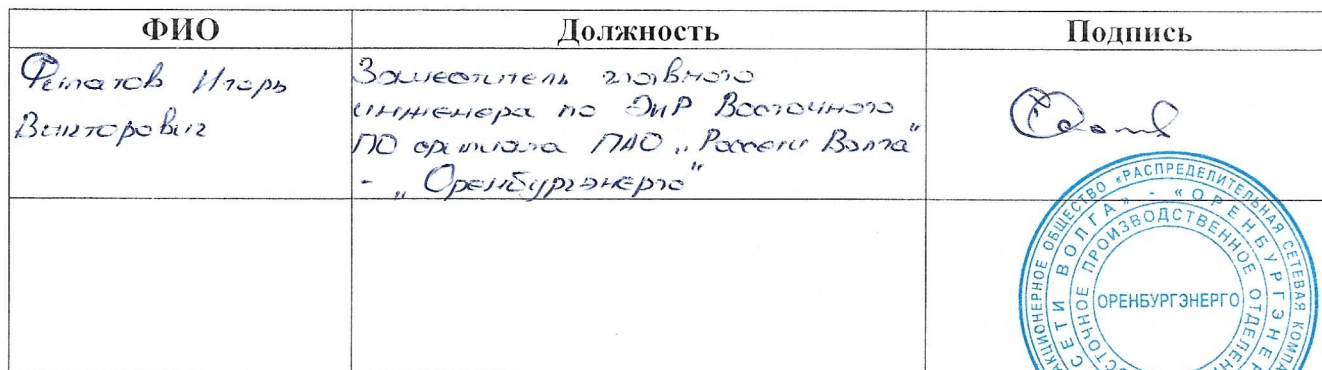 ФИО Должность Подпись
Филатов Игорь
Викторович
Заместитель главного
инженера по ЭиР Восточного
ПО филиала ПАО „Россети Волга"
- „Оренбургэнерго"
АКЦИОНЕРНОЕ ОБЩЕСТВО «РАСПРЕДЕЛИТЕЛЬНАЯ СЕТЕВАЯ КОМПА
СЕТИ ВОЛГА» - «ОРЕНБУРГЭНЕР
ПРОИЗВОДСТВЕННОЕ ОТДЕЛЕН
ОРЕНБУРГЭНЕРГО